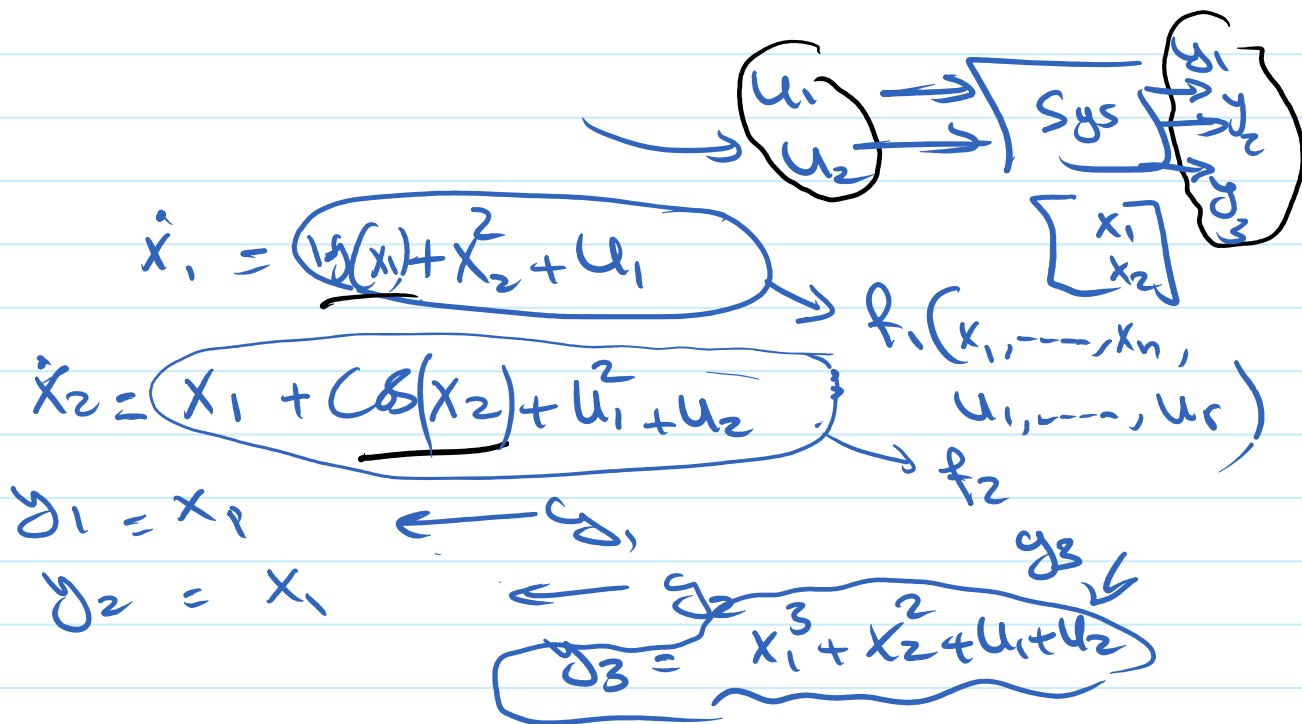 u₁ ⇒ Sys → y₁
u₂ → y₂
y₃
[x₁ x₂]
ẋ₁ = lg(x₁) + x₂² + u₁
f₁(x₁,----,xₙ,
u₁,----,uᵣ)
ẋ₂ = x₁ + Cos(x₂) + u₁² + u₂
f₂
y₁ = x₁ ← g₁
y₂ = x₁ ← g₂
g₃
y₃ = x₁³ + x₂² + u₁ + u₂